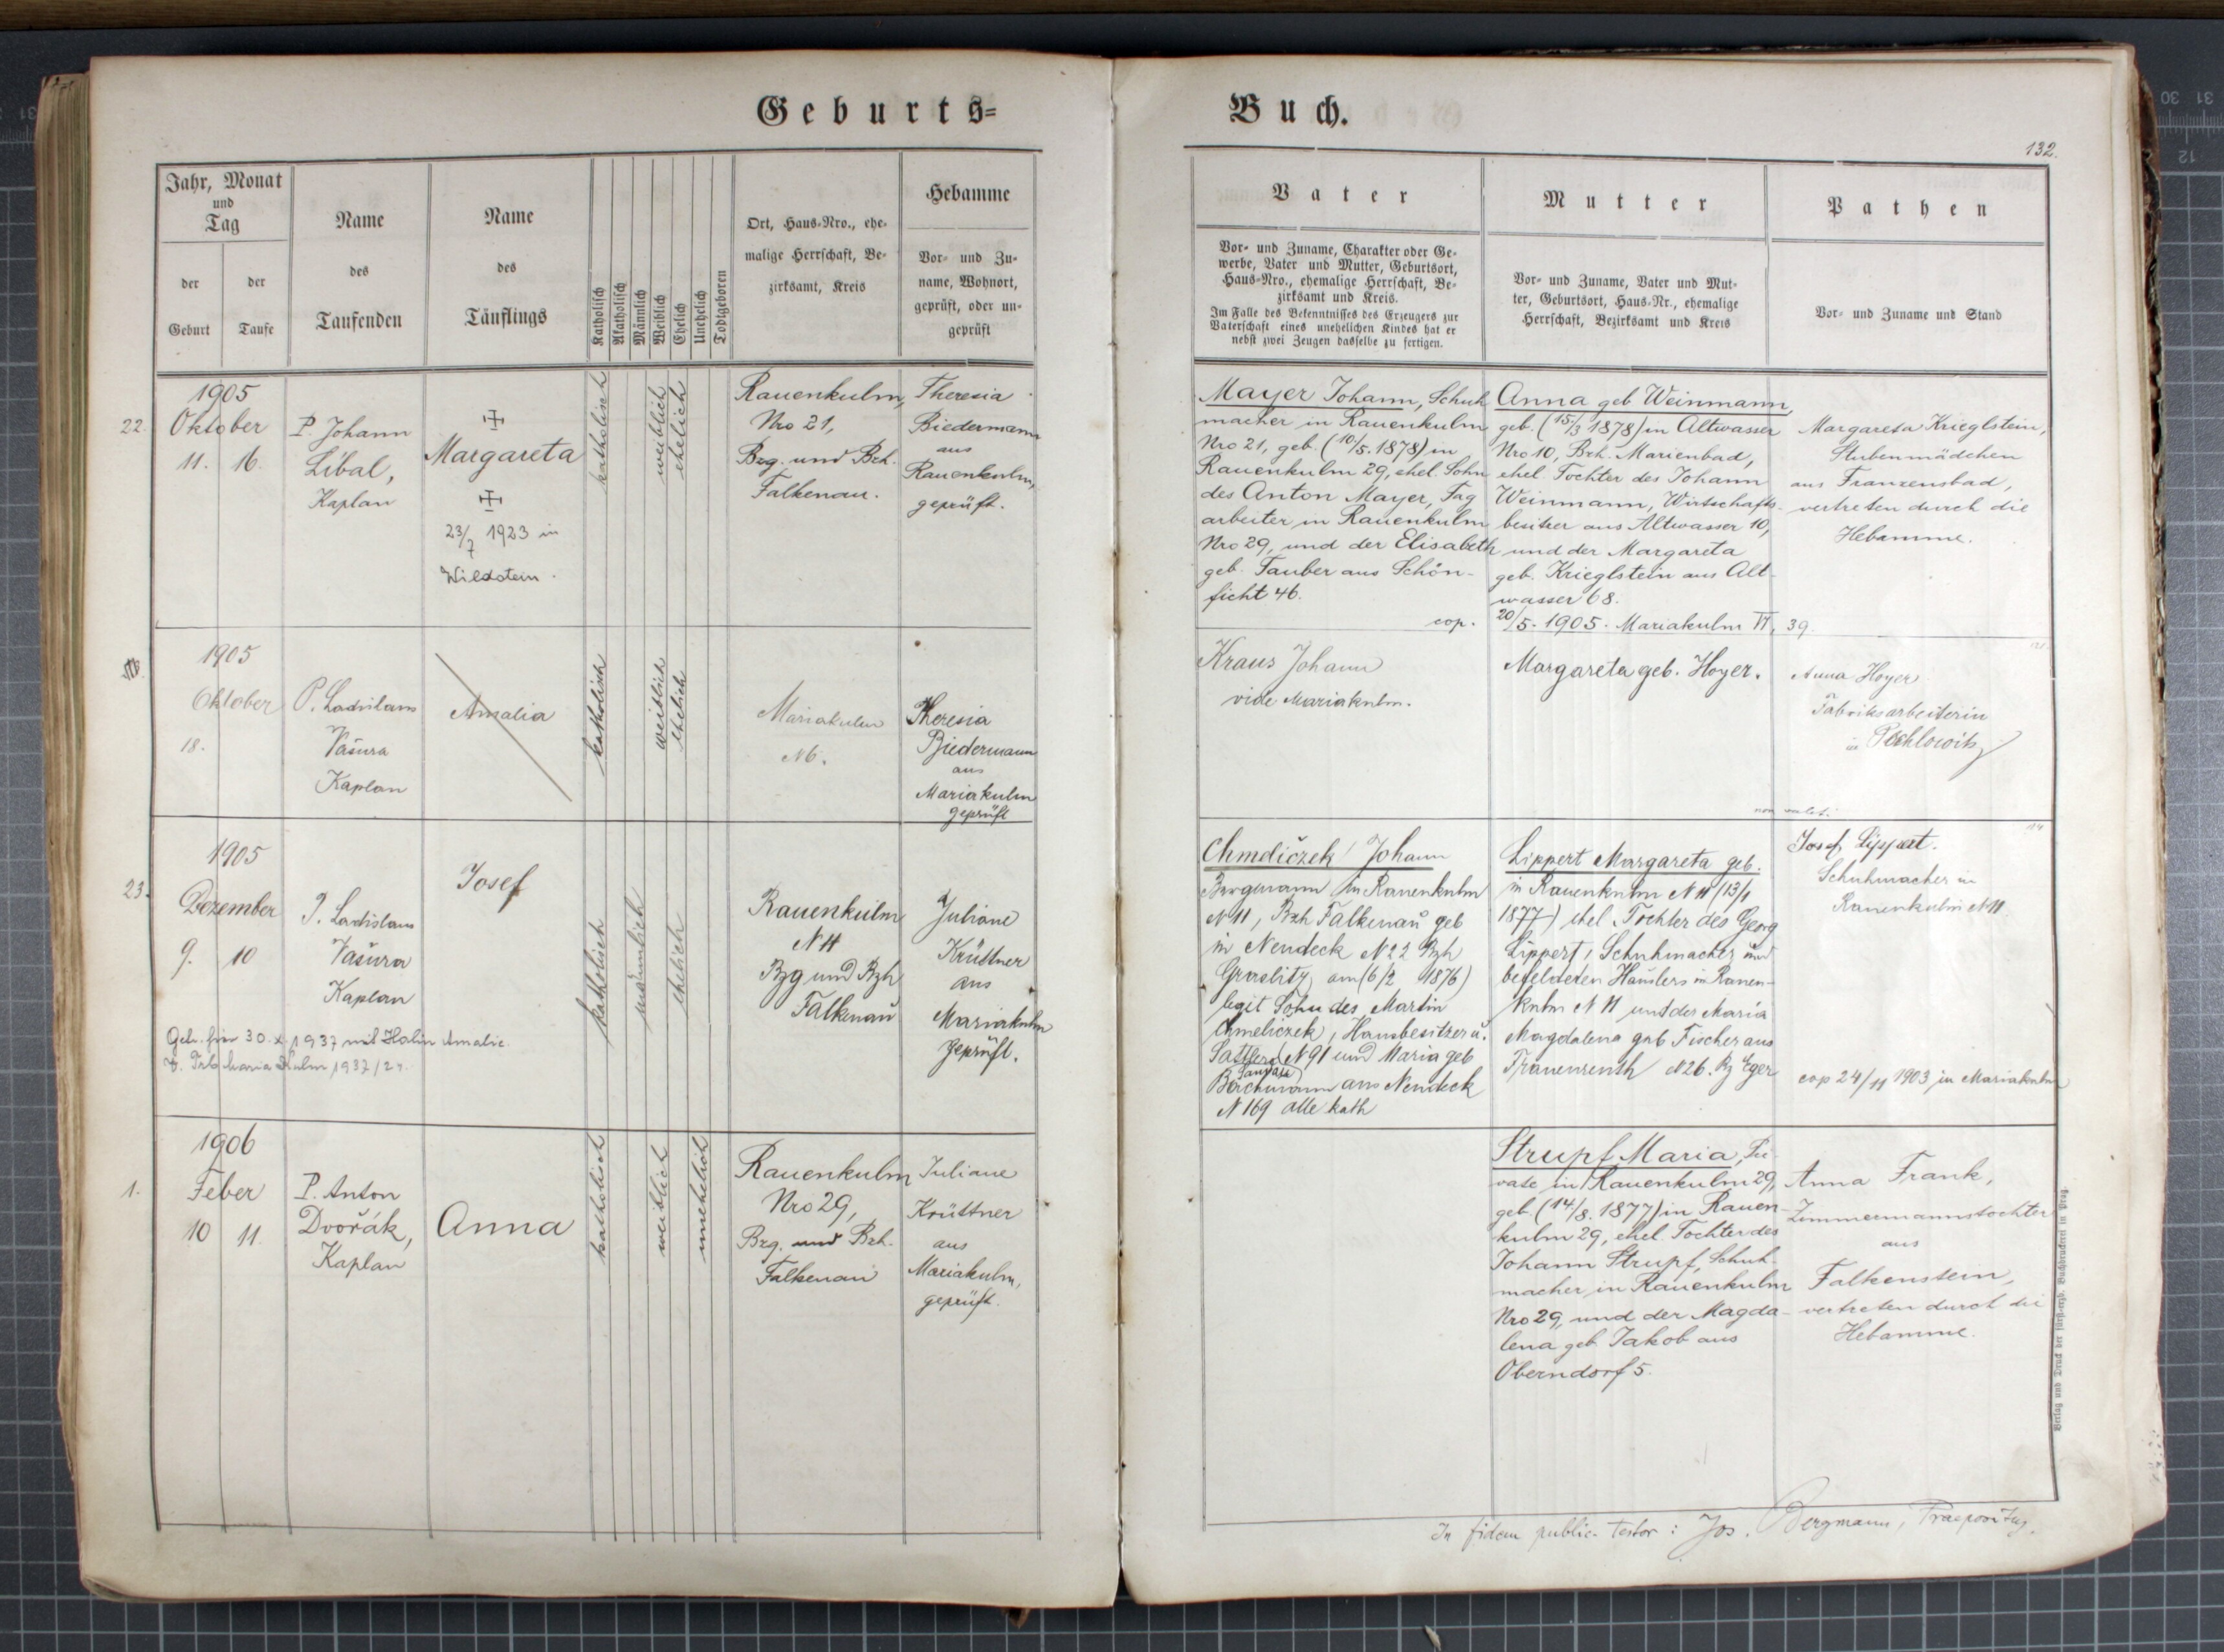 Geburts=
Buch.
132.
Jahr, Monat
und
Tag
der
Geburt
der
Taufe
Name
des
Taufenden
Name
des
Täuflings
Katholisch
Akatholisch
Männlich
Weiblich
Ehelich
Unehelich
Todtgeboren
Ort, Haus-Nro., ehe-
malige Herrschaft, Be-
zirksamt, Kreis
Hebamme
Vor- und Zu-
name, Wohnort,
geprüft, oder un-
geprüft
Vater
Vor- und Zuname, Charakter oder Ge-
werbe, Vater und Mutter, Geburtsort,
Haus-Nro., ehemalige Herrschaft, Be-
zirksamt und Kreis.
Im Falle des Bekenntnisses des Erzeugers zur
Vaterschaft eines unehelichen Kindes hat er
nebst zwei Zeugen dasselbe zu fertigen.
Mutter
Vor- und Zuname, Vater und Mut-
ter, Geburtsort, Haus-Nr., ehemalige
Herrschaft, Bezirksamt und Kreis
Pathen
Vor- und Zuname und Stand
22.
1905
Oktober
11. 16.
P. Johann
Líbal,
Kaplan
Margareta
23/7 1923 in
Wildstein.
katholisch
weiblich
ehelich
Rauenkulm,
Nro 21,
Bzg. und Bzh.
Falkenau.
Theresia
Biedermann
aus
Rauenkulm,
geprüft.
Mayer Johann, Schuh
macher in Rauenkulm
Nro 21, geb. (10/5. 1878) in
Rauenkulm 29, ehel. Sohn
des Anton Mayer, Tag
arbeiter in Rauenkulm
Nro 29, und der Elisabeth
geb. Tauber aus Schön-
ficht 46.
cop.
Anna geb Weinmann,
geb. (15/3 1878) in Altwasser
Nro 10, Bzh. Marienbad,
ehel. Tochter des Johann
Weinmann, Wirtschafts-
besitzer aus Altwasser 10,
und der Margareta
geb. Krieglstein aus Alt-
wasser 68.
20/5. 1905. Mariakulm VI, 39.
Margareta Krieglstein,
Stubenmädchen
aus Franzensbad,
vertreten durch die
Hebamme.
1905
Oktober
18.
P. Ladislaus
Vašura
Kaplan
Amalia
katholisch
weiblich
ehelich
Mariakulm
N6.
Theresia
Biedermann
aus
Mariakulm
geprüft
Kraus Johann
vide Mariakulm.
Margareta geb. Hoyer.
Anna Hoyer
Fabriksarbeiterin
in Pochlowitz
non valet.
23.
1905
Dezember
9. 10
P. Ladislaus
Vašura
Kaplan
30.X.1937 mit Halin Amalie.
Maria Kulm 1937/
Josef
katholisch
männlich
ehelich
Rauenkulm
N 11
Bzg und Bzh
Falkenau
Juliane
Krüttner
aus
Mariakulm
geprüft.
Chmeliczek Johann
Bergmann in Rauenkulm
N 11, Bzh Falkenau geb
in Neudeck N22 Bzh
Graslitz am (6/2 1876)
legit Sohn des Martin
Chmeliczek, Hausbesitzer u.
Sattlers N91 und Maria geb
Bachmann aus Neudeck
N 169 alle kath
Lippert Margareta geb.
in Rauenkulm N 11 (13/1
1877) ehel Tochter des Georg
Lippert, Schuhmacher und
befelderten Häuslers in Rauen-
kulm N 11 und der Maria
Magdalena geb Fischer aus
Frauenreuth N26. Bz Eger
Josef Lippert.
Schuhmacher in
Rauenkulm N11.
cop 24/11 1903 in Mariakulm
1.
1906
Feber
10 11.
P. Anton
Dvořák,
Kaplan
Anna
katholisch
weiblich
unehelich
Rauenkulm
Nro 29,
Bzg. und Bzh.
Falkenau
Juliane
Krüttner
aus
Mariakulm,
geprüft.
Strupf Maria, Pri-
vate in Rauenkulm 29,
geb. (14/8. 1877) in Rauen-
kulm 29, ehel. Tochter des
Johann Strupf, Schuh-
macher in Rauenkulm
Nro 29, und der Magda-
lena geb. Jakob aus
Oberndorf 5.
Anna Frank,
Zimmermannstochter
aus
Falkenstein,
vertreten durch die
Hebamme.
In fidem public. testor: Jos. Bergmann, Praepositus.
Verlag und Druck der fürst-erzb. Buchdruckerei in Prag.